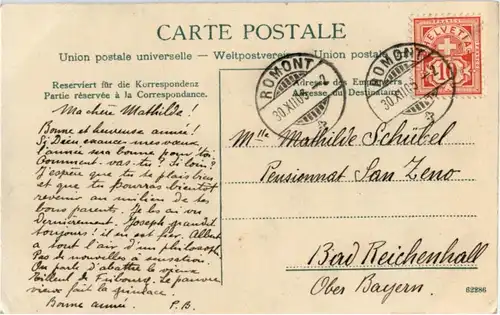 CARTE POSTALE
Union postale universelle. – Weltpostverein. – Unione postale
Reserviert für die Korrespondenz
Partie réservée à la Correspondance.
Adresse des Empfängers
Adresse du Destinataire
HELVETIA
10
ROMONT
30.XII.
ROMONT
30.XII.
Ma chère Mathilde!
Bonne et heureuse année!
Si Dieu exauce mes vœux
l'année sera bonne pour toi
Comment vas-tu? Si loin?
J'espère que tu te plais bien
et que tu pourras bientôt
revenir au milieu de tes
bons parents. Je les ai vu
Dernièrement. Joseph grandit
toujours! il en est fier. Albert
a tout l'air d'un philosoph
Pas de nouvelles à sensation.
On parle d'abattre le vieux
Tilleul de Fribourg. Le pauvre
vieux fait la grimace.
Bonne année. P.B.
Mlle Mathilde Schübel
Pensionnat San Zeno
Bad Reichenhall
Ober Bayern.
62286